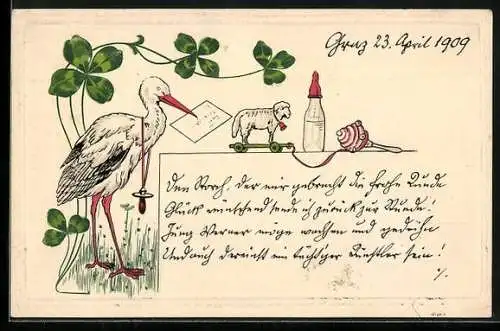 Graz 23. April 1909
Den Storch, der mir gebracht die frohe Kunde
Glück wünschend sende ich zurück zur Runde!
Jung Werner möge wachsen und gedeihn
Und auch dereinst ein tücht'ger Künstler sein!